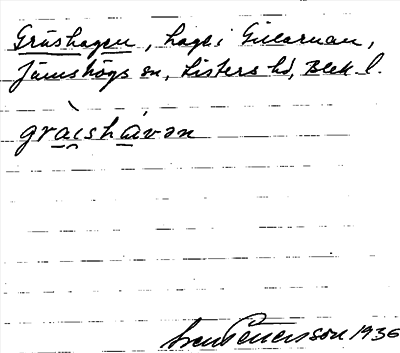 Gråshagen, hage i Gillarnau,
Jämshögs sn, Listers hd, Blek. l.
gràishávən
Sven Benersson 1936